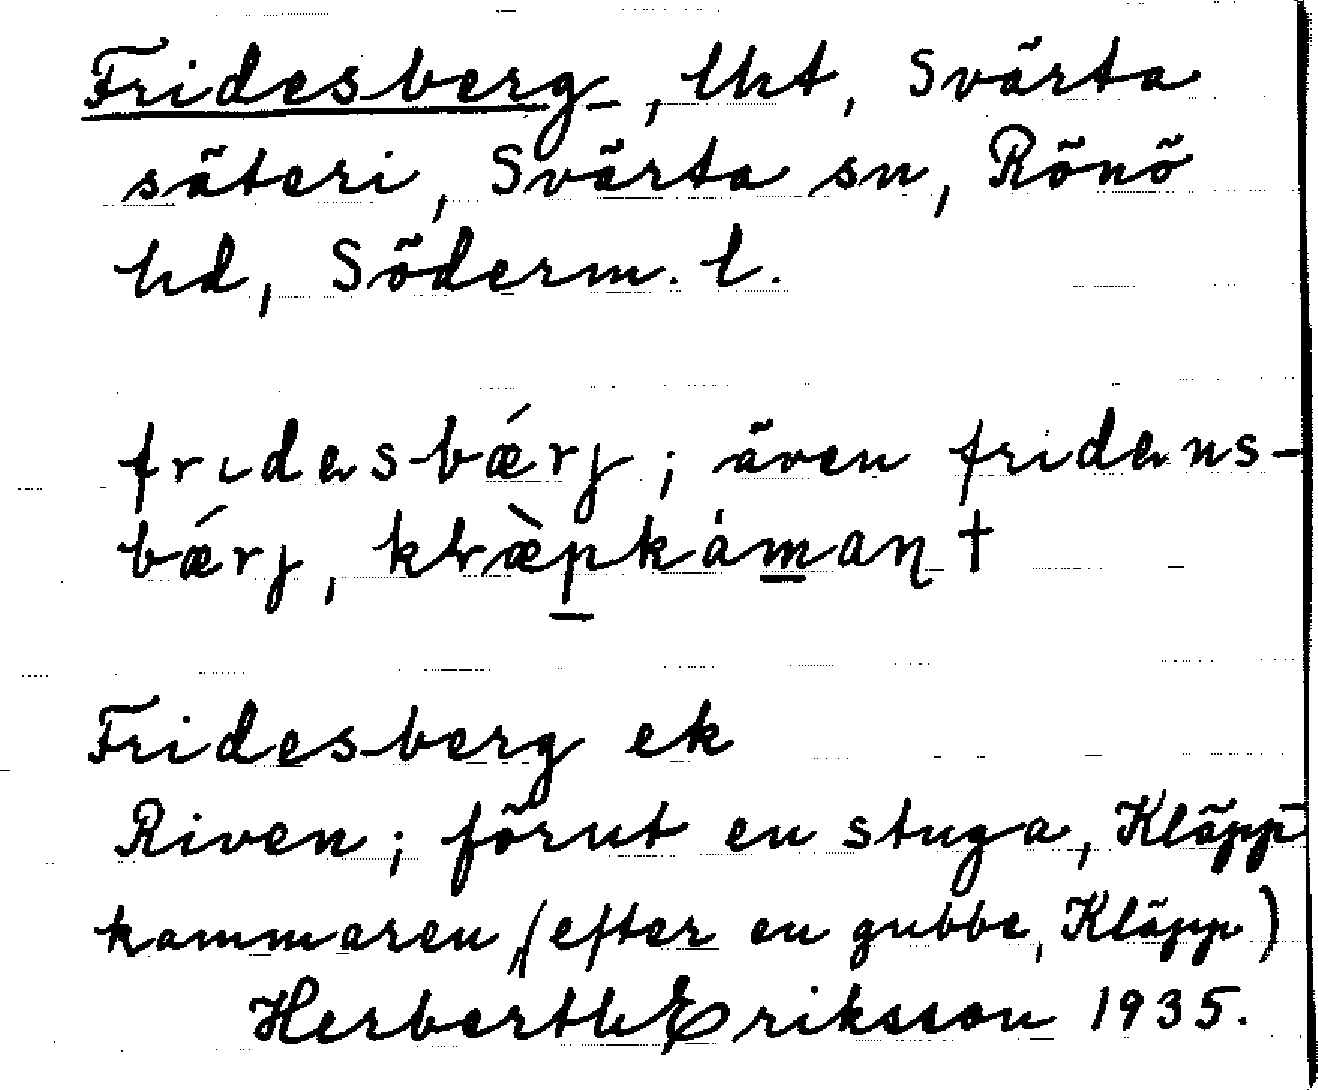 Fridesberg, lht, Svärta
säteri, Svärta sn, Rönö
hd, Söderm. l.
fridesbǽrj; även fridens-
bǽrj, klæ̀pkámaɳ †
Fridesberg ek
Riven; förut en stuga, Kläpp-
kammaren (efter en gubbe, Kläpp)
Herberth Eriksson 1935.